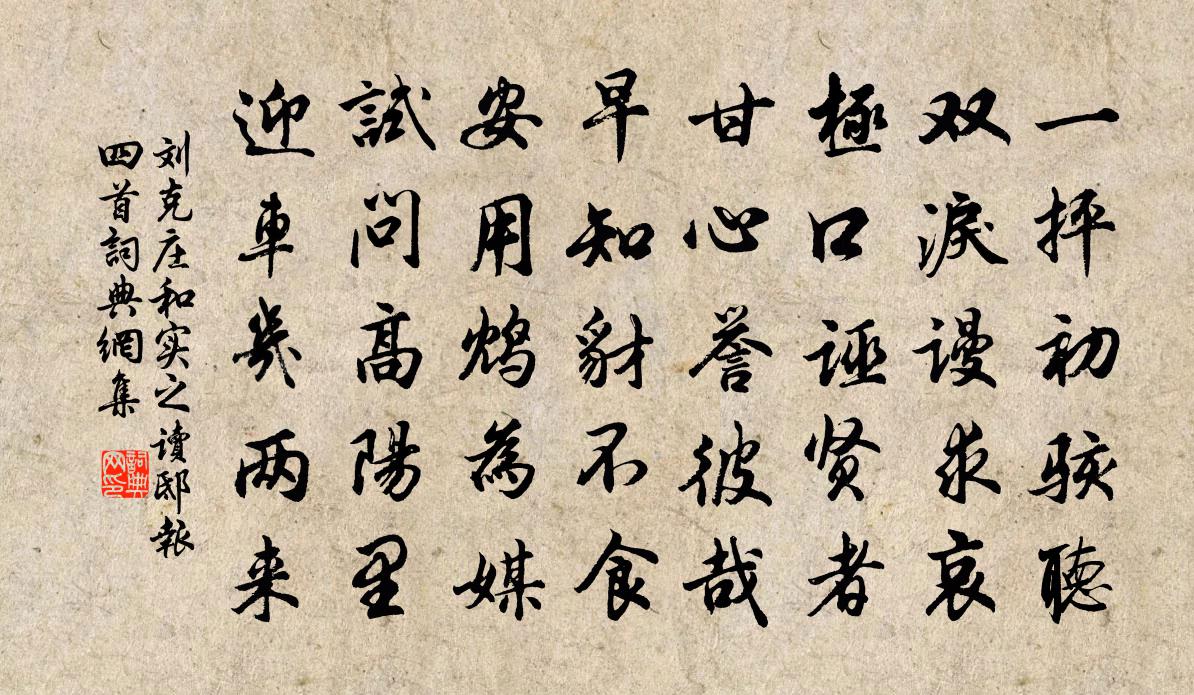 一抨初駭聽
双淚謾求哀
極口誣贤者
甘心誉彼哉
早知豺不食
安用鸩為媒
試問高陽里
迎車幾两来
刘克庄和实之讀邸報
四首詞典網集
詞典
网印